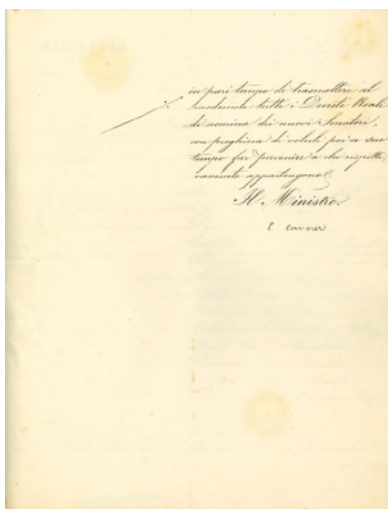 in pari tempo di trasmettere al
medesimo tutti i Decreti Reali
di nomina dei nuovi Senatori,
con preghiera di volerli poi a suo
tempo far pervenire a chi rispetti-
vamente appartengono.
Il Ministro
C Cavour